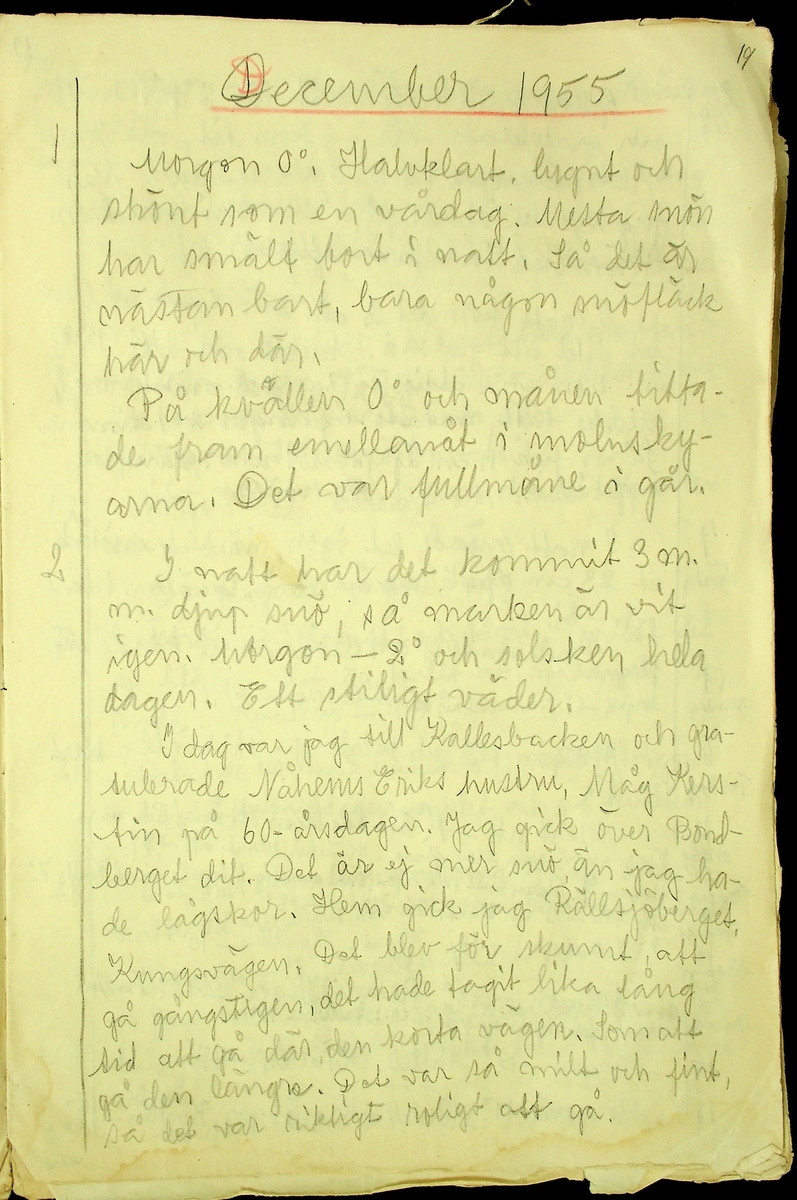 19
December 1955
1
Morgon 0°. Halvklart, lugnt och
skönt som en vårdag. Mesta snön
har smält bort i natt. Så det är
nästan bart, bara någon snöfläck
här och där.
På kvällen 0° och månen titta-
de fram emellanåt i molnsky-
arna. Det var fullmåne i går.
2
I natt har det kommit 3 m.
m. djup snö, så marken är vit
igen. Morgon – 2° och solsken hela
dagen. Ett stiligt väder.
I dag var jag till Kallesbacken och gra-
tulerade Nåhems Eriks hustru, Måg Kers-
tin på 60-årsdagen. Jag gick över Bond-
berget dit. Det är ej mer snö, än jag ha-
de lågskor. Hem gick jag Rällsjöberget,
Kungsvägen. Det blev för skumt, att
gå gångstigen, det hade tagit lika lång
tid att gå där, den korta vägen. Som att
gå den längre. Det var så milt och fint,
så det var riktigt roligt att gå.